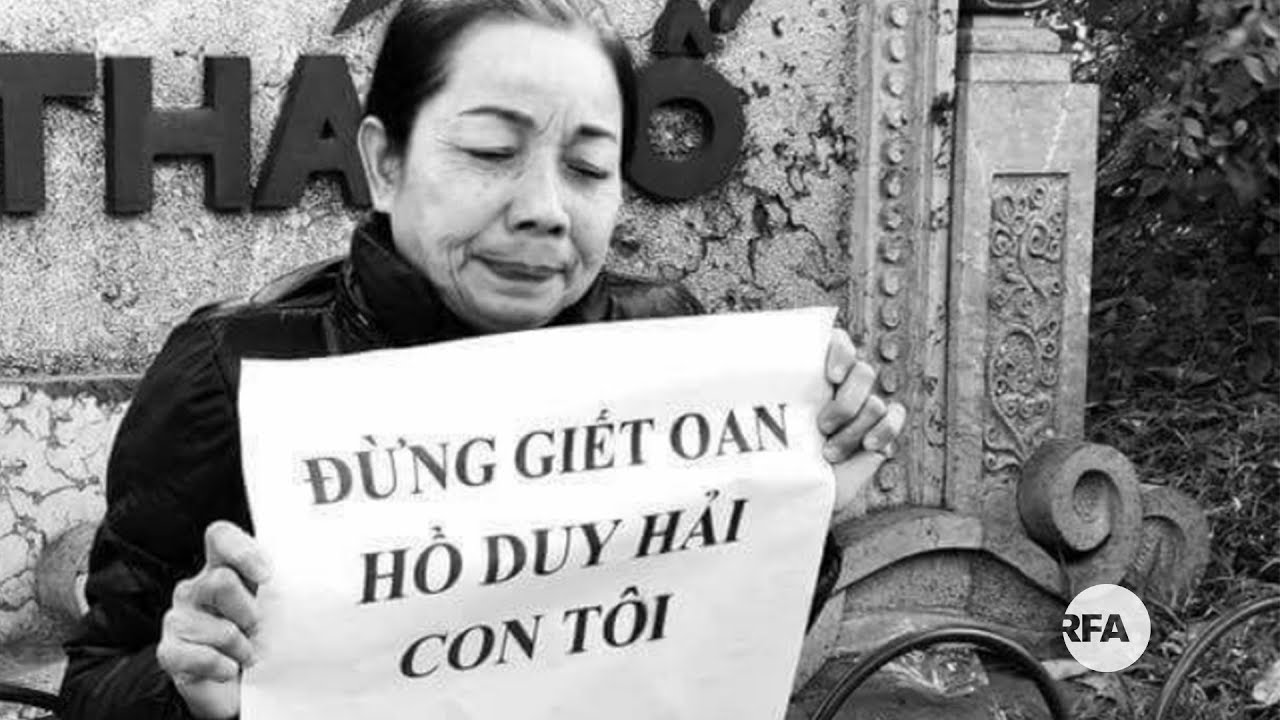 THÁ Ố
ĐỪNG GIẾT OAN
HỒ DUY HẢI
CON TÔI
RFA